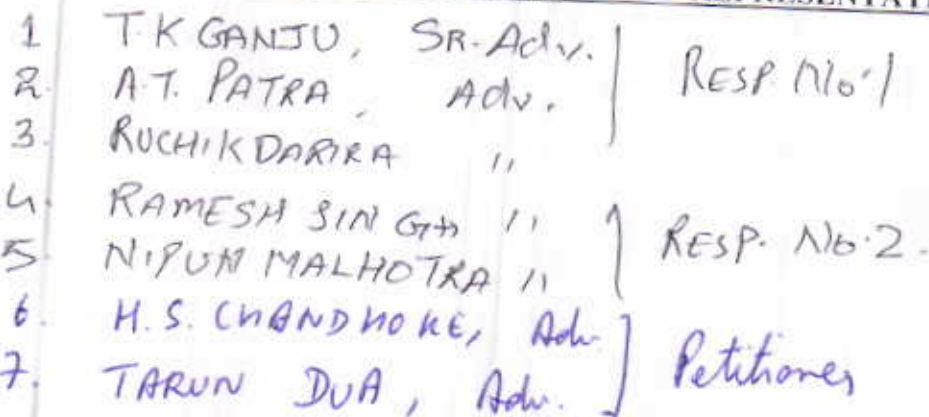 REPRESENTAT
1 T.K GANJU, SR. Adv.
2. A.T. PATRA, Adv. RESP. No.1
3. RUCHIK DARIRA "
4. RAMESH SINGH "
5. NIPUN MALHOTRA " RESP. No.2.
6. H.S. CHANDHOKE, Adv.
7. TARUN DUA, Adv. Petitioner